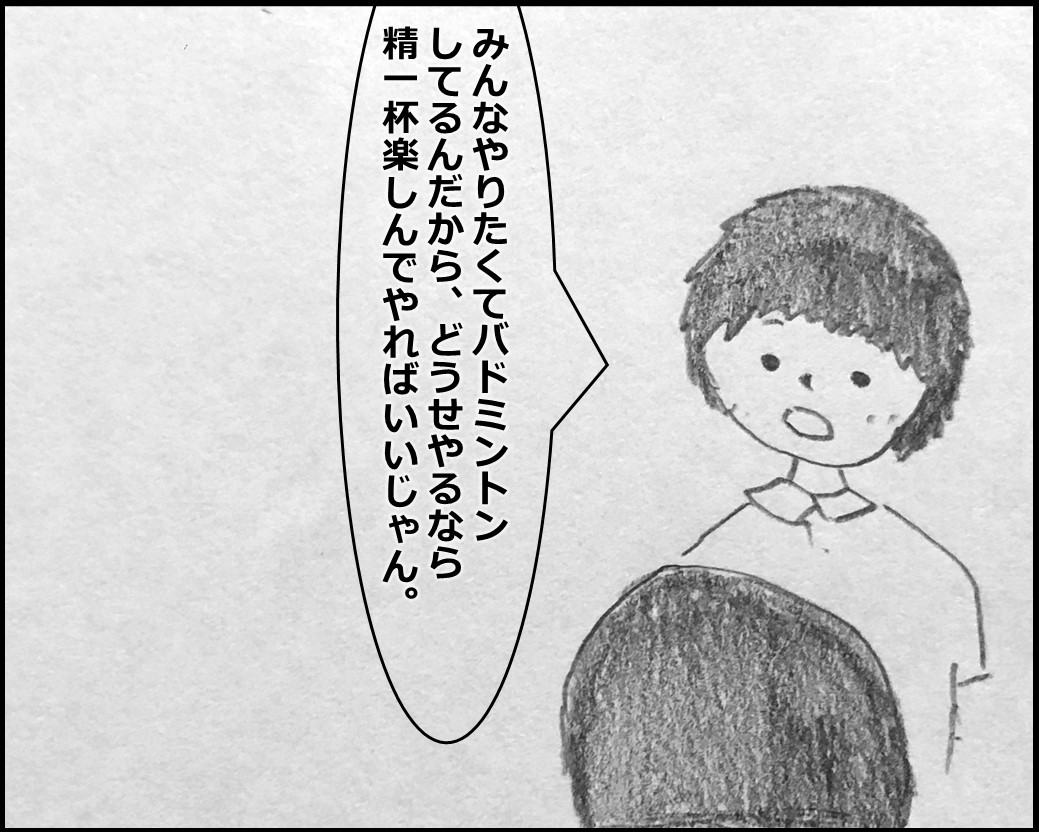 みんなやりたくてバドミントン
してるんだから、どうせやるなら
精一杯楽しんでやればいいじゃん。